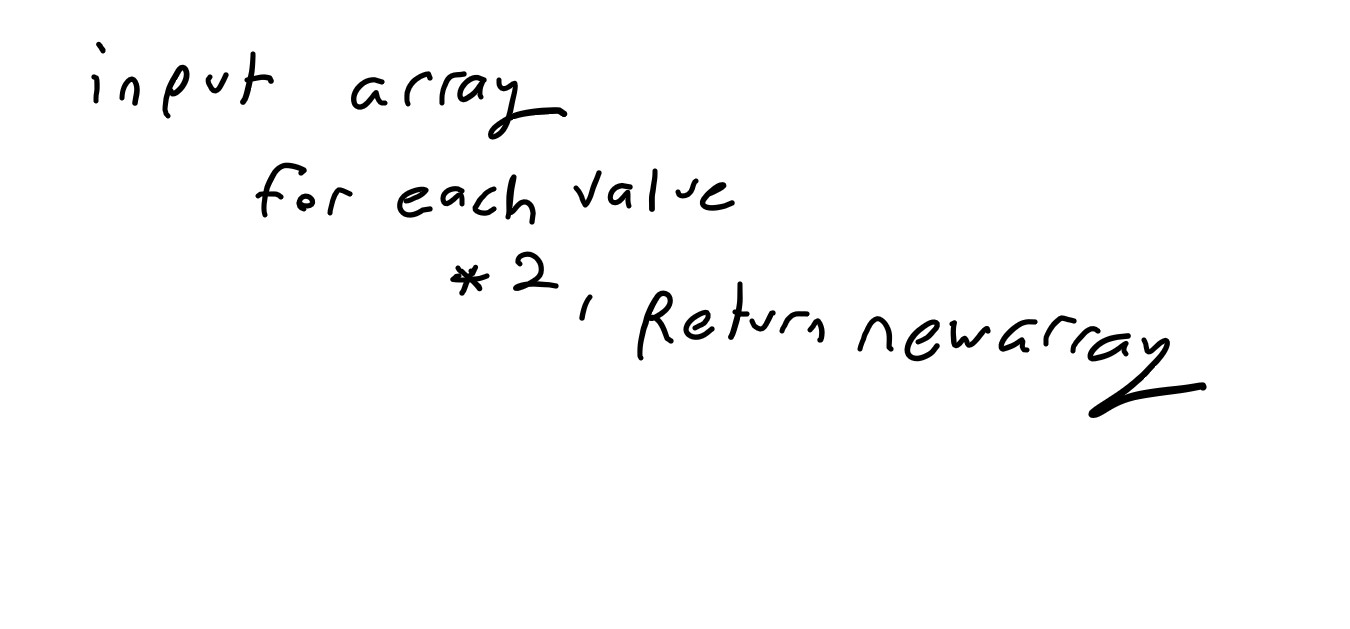 input array
for each value
*2, Return newarray